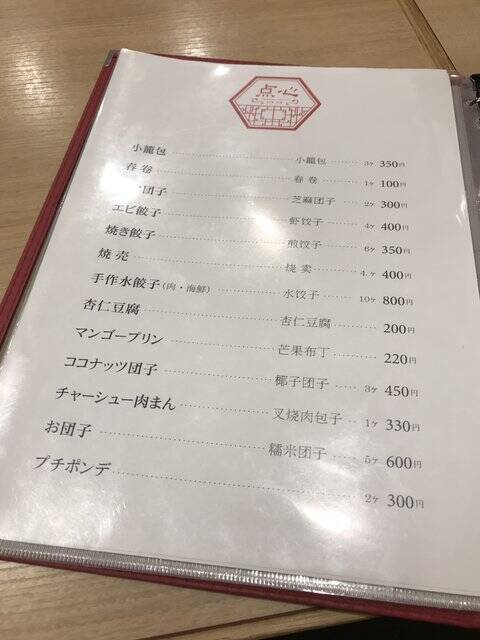 点心
小龍包 小龍包 3ヶ 350円
春巻 春卷 1ヶ 100円
団子 芝麻团子 2ヶ 300円
エビ餃子 虾饺子 4ヶ 400円
焼き餃子 煎饺子 6ヶ 350円
焼売 烧卖 4ヶ 400円
手作水餃子(肉・海鮮) 水饺子 10ヶ 800円
杏仁豆腐 杏仁豆腐 200円
マンゴープリン 芒果布丁 220円
ココナッツ団子 椰子团子 3ヶ 450円
チャーシュー肉まん 叉烧肉包子 1ヶ 330円
お団子 糯米团子 5ヶ 600円
プチポンデ 2ヶ 300円